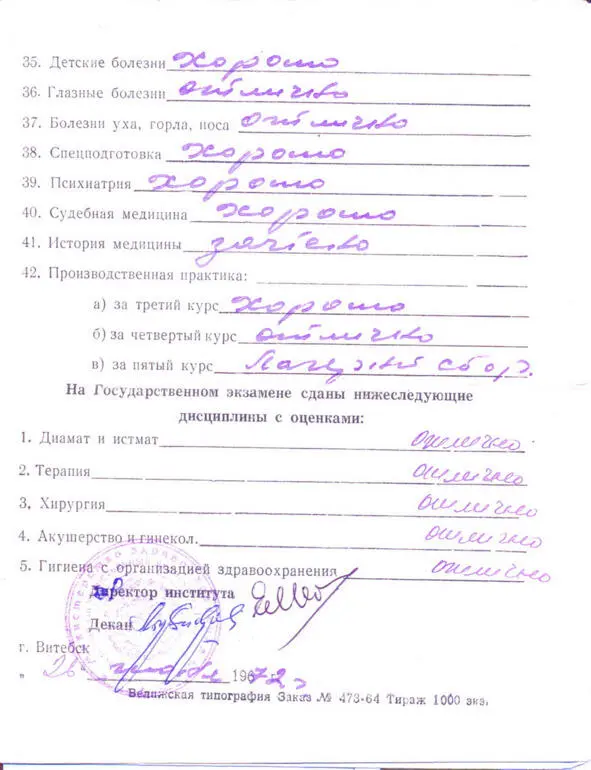 35. Детские болезни хорошо
36. Глазные болезни отлично
37. Болезни уха, горла, носа отлично
38. Спецподготовка хорошо
39. Психиатрия хорошо
40. Судебная медицина хорошо
41. История медицины зачтено
42. Производственная практика:
а) за третий курс хорошо
б) за четвертый курс отлично
в) за пятый курс Лагерный сбор.
На Государственном экзамене сданы нижеследующие
дисциплины с оценками:
1. Диамат и истмат отлично
2. Терапия отлично
3. Хирургия отлично
4. Акушерство и гинекол. отлично
5. Гигиена с организацией здравоохранения отлично
Директор института
Декан
г. Витебск
„ 26 " 1967 г.
Велижская типография Заказ № 473-64 Тираж 1000 экз.